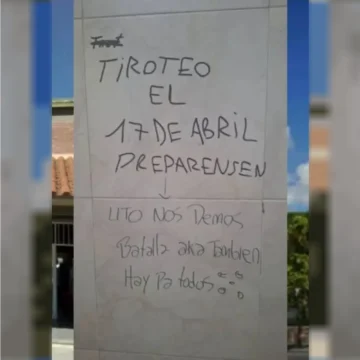 TiROTEO
EL
17 DE ABRIL
PREPARENSEN
LITO NOS Demos
Batalla aka También
Hay Pa todos